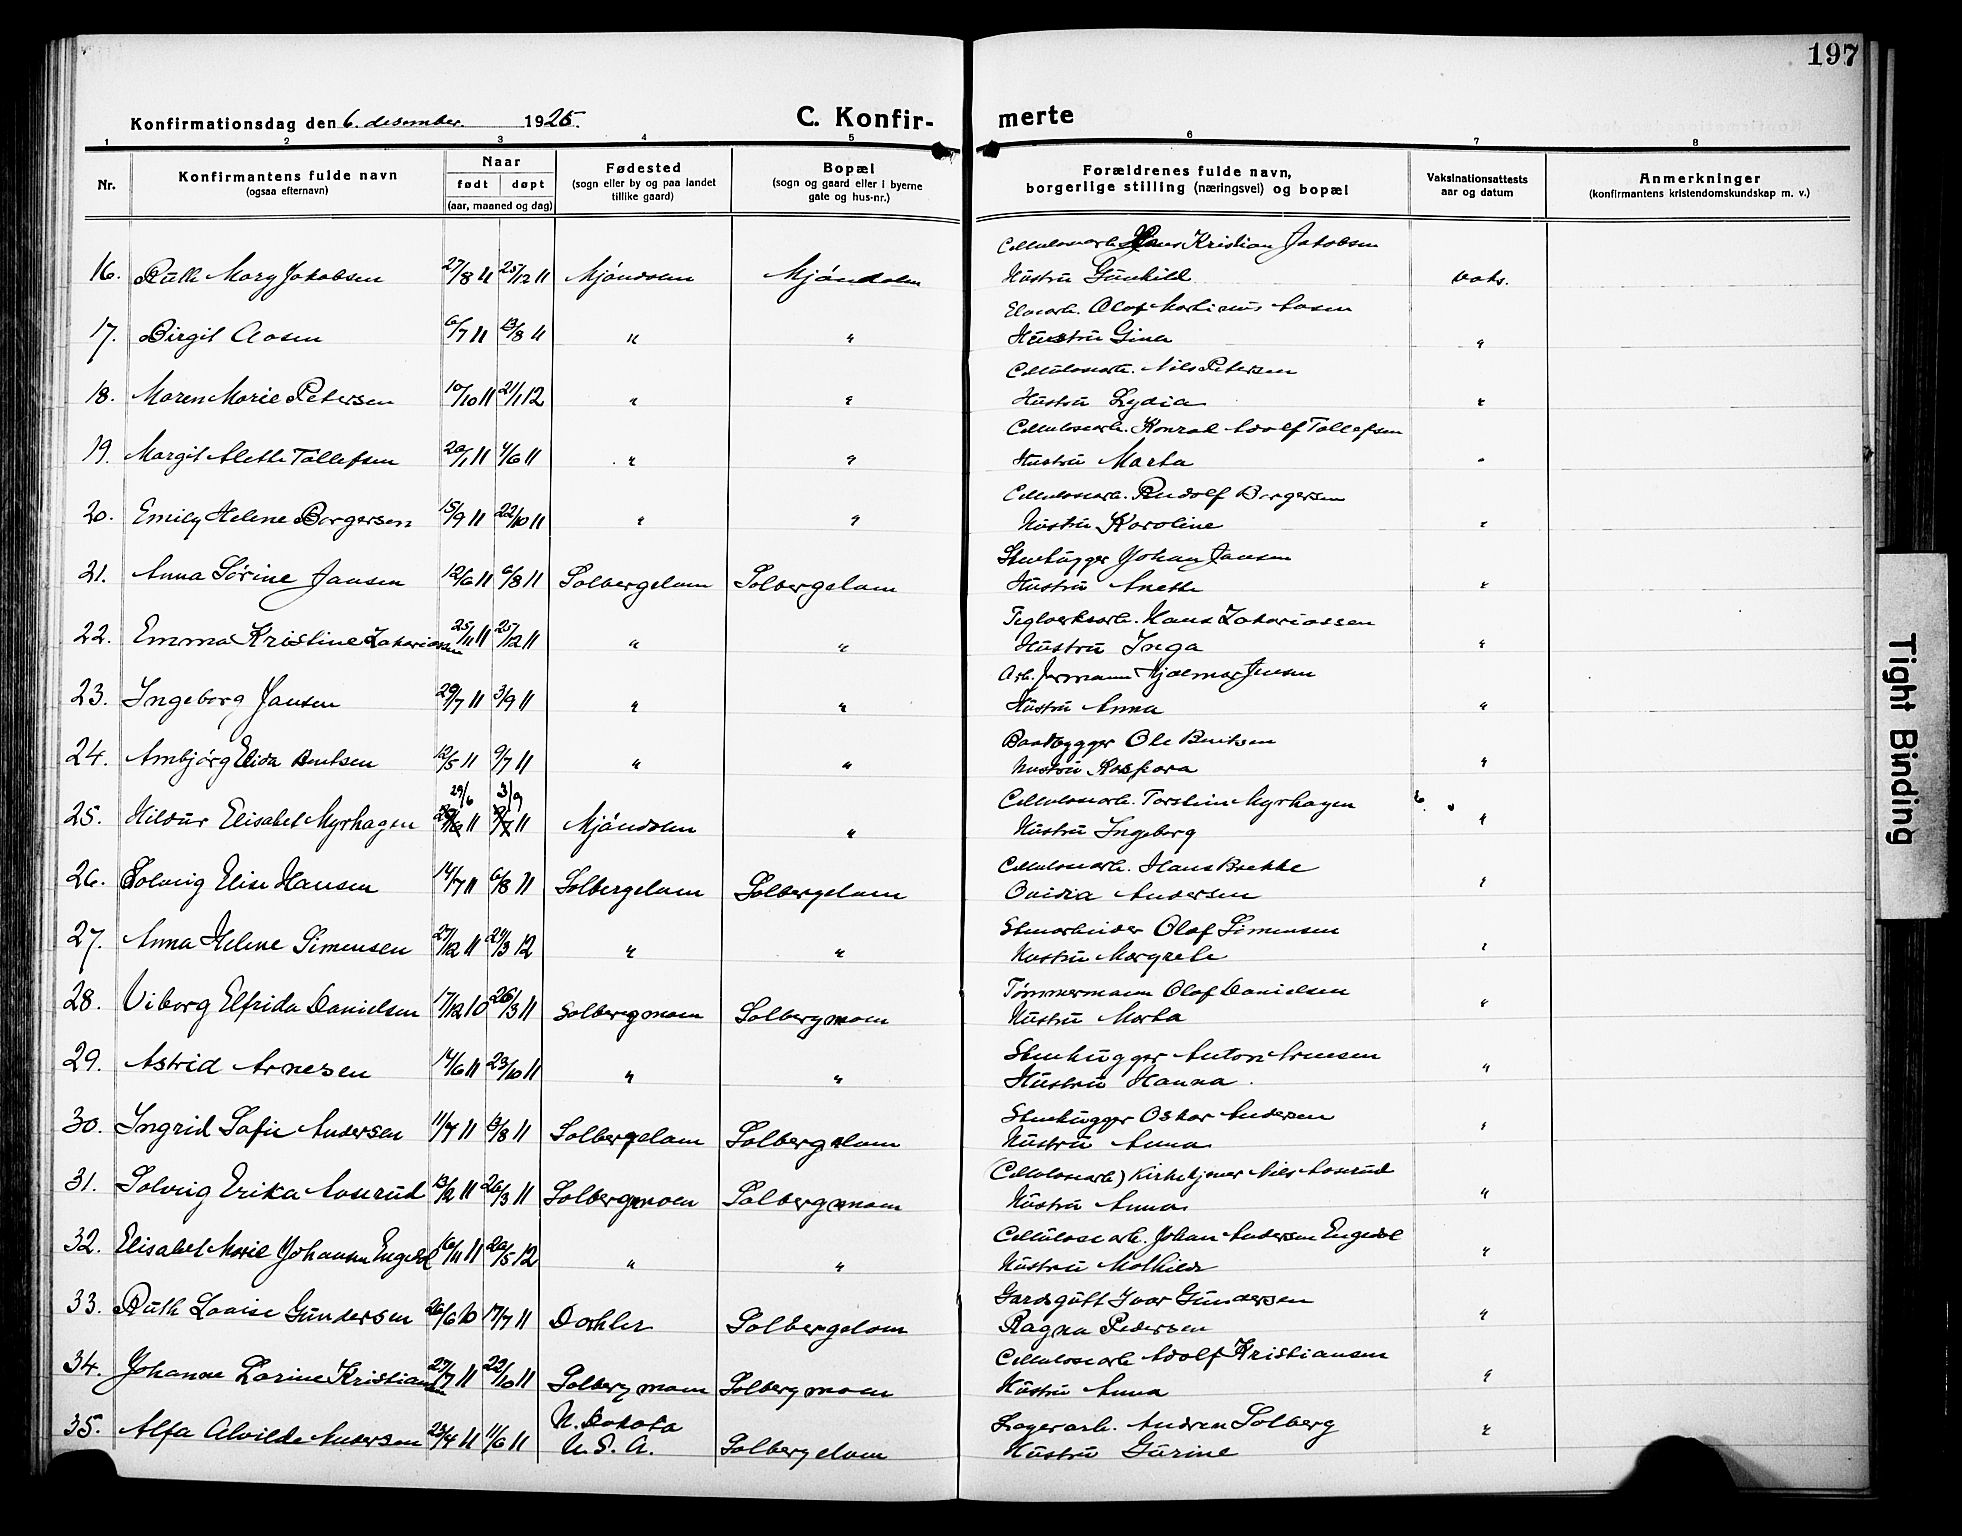 197
Konfirmationsdag den 6. desember. 1925.
C. Konfir-
merte
1 2 3 4 5 6 7 8
Nr.
Konfirmantens fulde navn
(ogsaa efternavn)
Naar
født døpt
(aar, maaned og dag)
Fødested
(sogn eller by og paa landet
tillike gaard)
Bopæl
(sogn og gaard eller i byerne
gate og hus-nr.)
Forældrenes fulde navn,
borgerlige stilling (næringsvei) og bopæl
Vaksinationsattests
aar og datum
Anmerkninger
(konfirmantens kristendomskundskap m. v.)
Cellulosearb. Hans Kristian Jakobsen
16. Ruth Mary Jakobsen 27/8 11 25/12 11 Mjøndalen Mjøndalen Hustru Gunhild vaks.
Olaf Martinius Aasen
17. Birgit Aasen 6/7 11 13/8 11 " " Hustru Gina "
Cellulosearb. Nils Petersen
18. Maren Marie Petersen 10/10 11 21/1 12 " " Hustru Lydia "
Cellulosearb. Konrad Adolf Tollefsen
19. Margit Alette Tollefsen 20/1 11 4/6 11 " " Hustru Marta "
Cellulosearb. Rudolf Borgersen
20. Emily Helene Borgersen 15/9 11 22/10 11 " " Hustru Karoline "
Stenhugger Johan Jansen
21. Anna Sørine Jansen 12/6 11 6/8 11 Solbergelven Solbergelven Hustru Anette "
Teglverksarb. Hans Zakariassen
22. Emma Kristine Zakariassen 25/11 11 25/12 11 " " Hustru Inga "
Arb. Hjalmar Jensen
23. Ingeborg Jansen 29/7 11 3/9 11 " " Hustru Anna "
Baatbygger Ole Bentsen
24. Arnbjørg Elida Bentsen 12/5 11 9/7 11 " " Hustru Kaspara "
29/6 3/9 Cellulosearb. Torstein Myrhagen
25. Hildur Elisabet Myrhagen 11 11 Mjøndalen " Hustru Ingeborg "
Cellulosearb. Hans Brekke
26. Solveig Elise Hansen 14/7 11 6/8 11 Solbergelven Solbergelven Ovidia Andersen "
Stenarbeider Olaf Simensen
27. Anna Helene Simensen 27/12 11 24/3 12 " " Hustru Margrete "
Tømmermann Olaf Danielsen
28. Viborg Elfrida Danielsen 17/12 10 26/3 11 Solbergmoen Solbergmoen Hustru Marta "
Stenhugger Anton Arnesen
29. Astrid Arnesen 14/6 11 23/10 11 " " Hustru Hanna. "
Stenhugger Oskar Andersen
30. Ingrid Sofie Andersen 11/7 11 13/8 11 Solbergelven Solbergelven Hustru Anna "
(Cellulosearb.) Kirketjener Nils Aaserud
31. Solveig Erika Aaserud 13/2 11 26/3 11 Solbergmoen Solbergmoen Hustru Anna "
Cellulosearb. Johan Andersen Engedal
32. Elisabet Marie Johansen Engedal 16/11 11 26/5 12 " " Hustru Mathilde "
Gardsgutt Ivar Gundersen
33. Ruth Lovise Gundersen 26/6 10 17/7 11 Solbergelven Ragna Pedersen "
Cellulosearb. Adolf Kristiansen
34. Johanne Larine Kristiansen 27/7 11 22/10 11 Solbergmoen Solbergmoen Hustru Anna "
N. Dakota Lagerarb. Andrew Solberg
35. Alfa Alvilde Andersen 23/4 11 11/6 11 U. S. A. Solbergelven Hustru Gurine "
Tight Binding